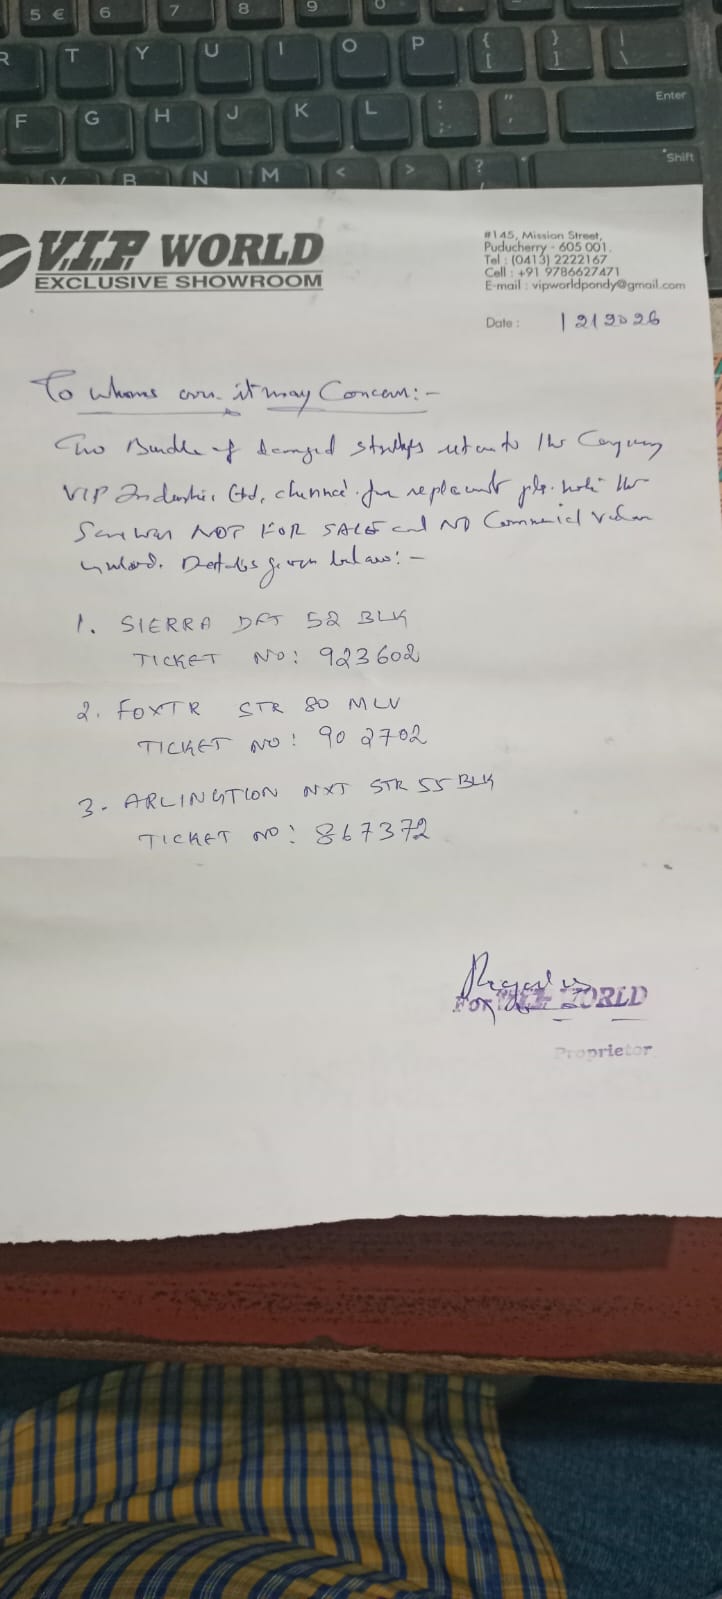 5 € 6 7 8 9 0
R T Y U I O P { [ } ] | \
F G H J K L : ; " ' Enter
V B N M < > ? Shift
V.I.P. WORLD
EXCLUSIVE SHOWROOM
#145, Mission Street,
Puducherry - 605 001.
Tel : (0413) 2222167
Cell : +91 9786627471
E-mail : vipworldpondy@gmail.com
Date :
To whom it may Concern:-
Two Bundle of damaged return to the Company
VIP Industries Ltd, Chennai for replacement pls. note the
Same was NOT FOR SALE and NO Commercial Value
Details given below:-
1. SIERRA DFT 52 BLK
TICKET NO: 923602
2. FOXTR STR 80 MLV
TICKET NO: 902702
3. ARLINGTON NXT STR 55 BLK
TICKET NO: 867372
For V.I.P. WORLD
Proprietor